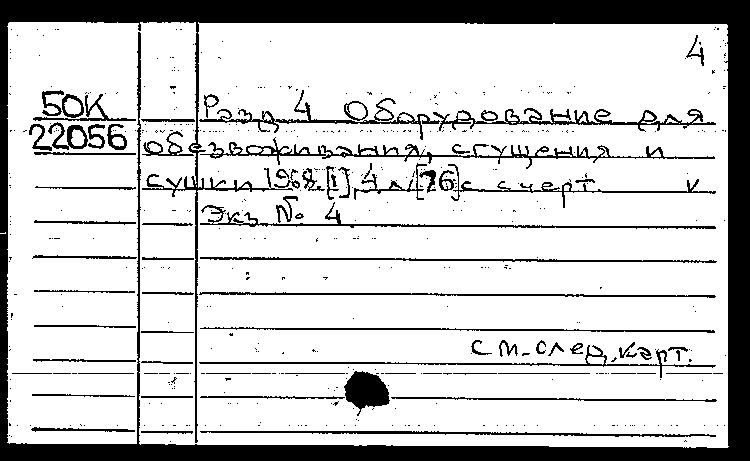 4
50К Разд 4 Оборудование для
22056 обезвоживания, сгущения и
сушки 1968. [1], 4 л/[76]с с черт. v
Экз № 4.
см. след. карт.